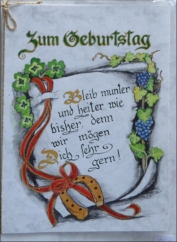 Zum Geburtstag
Bleib munter
und heiter wie
bisher denn
wir mögen
Dich sehr
gern!